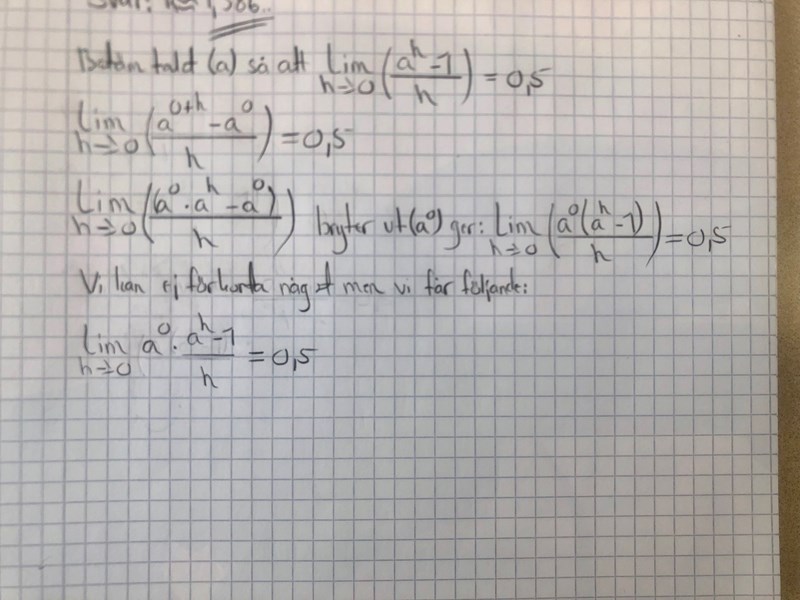 Svar: 1,386..
talet (a) så att lim h→0 (a^h -1 / h) = 0,5
lim h→0 (a^(0+h) - a^0 / h) = 0,5
lim h→0 ((a^0 · a^h - a^0) / h) bryter ut (a^0) ger: lim h→0 (a^0(a^h - 1) / h) = 0,5
Vi kan ej förkorta något men vi får följande:
lim h→0 a^0 · a^h -1 / h = 0,5